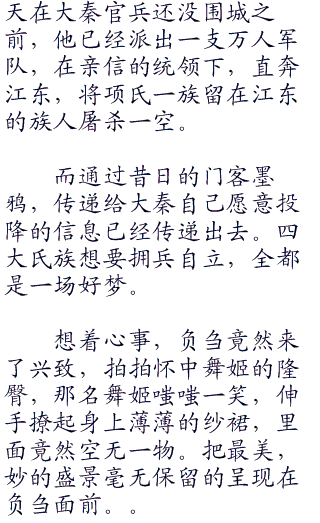 天在大秦官兵还没围城之
前，他已经派出一支万人军
队，在亲信的统领下，直奔
江东，将项氏一族留在江东
的族人屠杀一空。
而通过昔日的门客墨
鸦，传递给大秦自己愿意投
降的信息已经传递出去。四
大氏族想要拥兵自立，全都
是一场好梦。
想着心事，负刍竟然来
了兴致，拍拍怀中舞姬的隆
臀，那名舞姬嗤嗤一笑，伸
手撩起身上薄薄的纱裙，里
面竟然空无一物。把最美，
妙的盛景毫无保留的呈现在
负刍面前。。